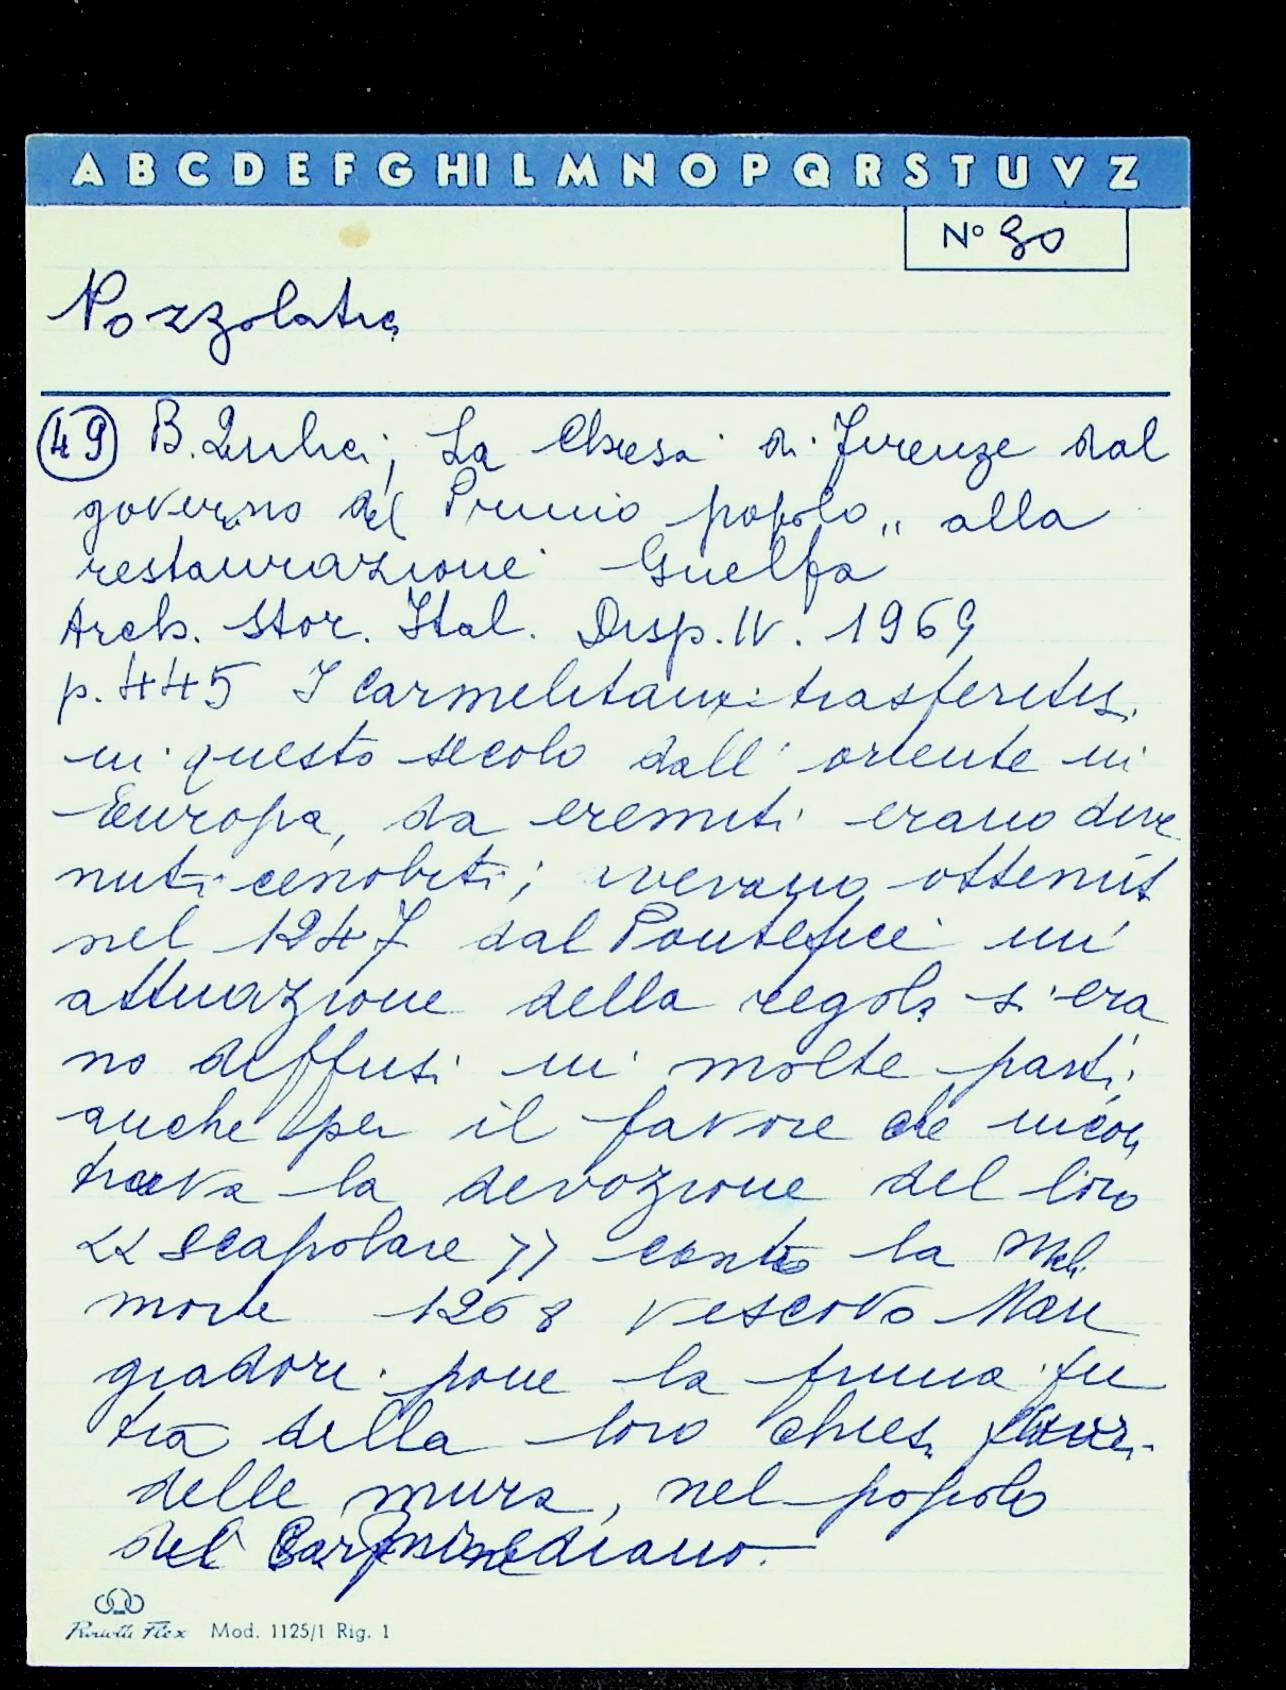 A B C D E F G H I L M N O P Q R S T U V Z
N° 80
Pozzolatico
49 B. Quilici, La Chiesa di Firenze dal
governo del Primo popolo" alla
restaurazione Guelfa
Arch. Stor. Ital. Disp. IV. 1969
p. 445 I Carmelitani trasferitisi
in questo secolo dall'oriente in
Europa, da eremiti erano dive
nuti cenobiti; avevano ottenut
nel 1247 dal Pontefice un'
attuazione della regola s'era
no diffusi in molte parti
anche per il favore che incon
trava la devozione del loro
<< scapolare >> contro la
morte 1268 vescovo Man
giadori pone la prima pie
tra della loro chiesa fuori
delle mura, nel popolo
del
Mod. 1125/1 Rig. 1